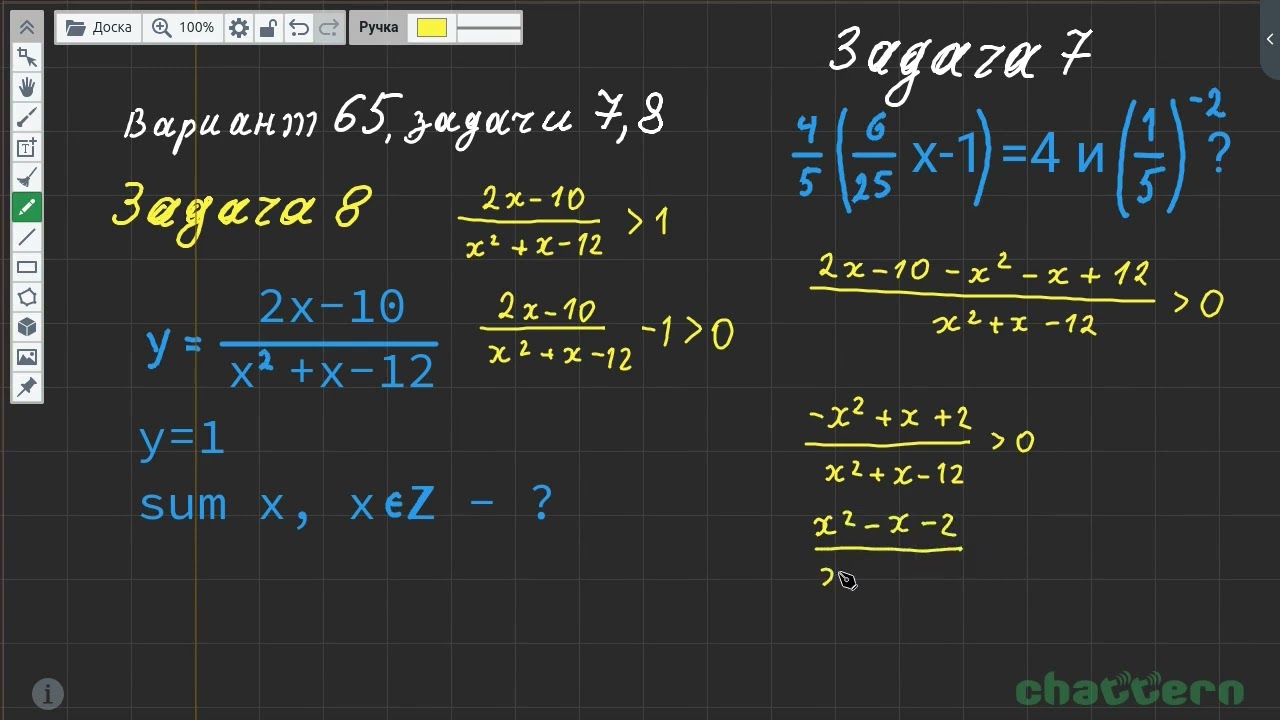 Доска 100% Ручка
Вариант 65, задачи 7,8
Задача 8
y = (2x-10)/(x² +x-12)
y=1
sum x, x∈Z - ?
(2x-10)/(x²+x-12) > 1
(2x-10)/(x²+x-12) -1>0
Задача 7
4/5 (6/25 x-1) =4 и (1/5)⁻² ?
(2x-10-x²-x+12)/(x²+x-12) >0
(-x²+x+2)/(x²+x-12) >0
x²-x-2
chattern